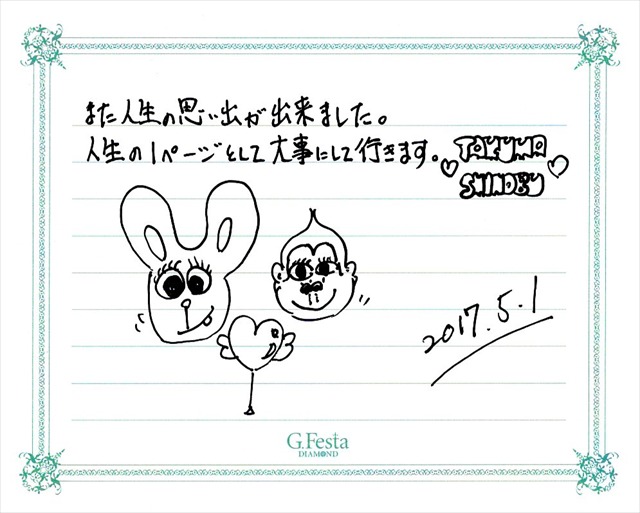 また人生の思い出が出来ました。
人生の1ページとして大事にして行きます。
TAKUMA
SHINOBU
2017.5.1
G.Festa
DIAMOND